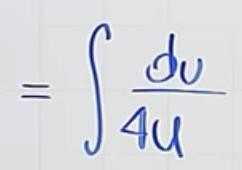 = ∫ du/4u